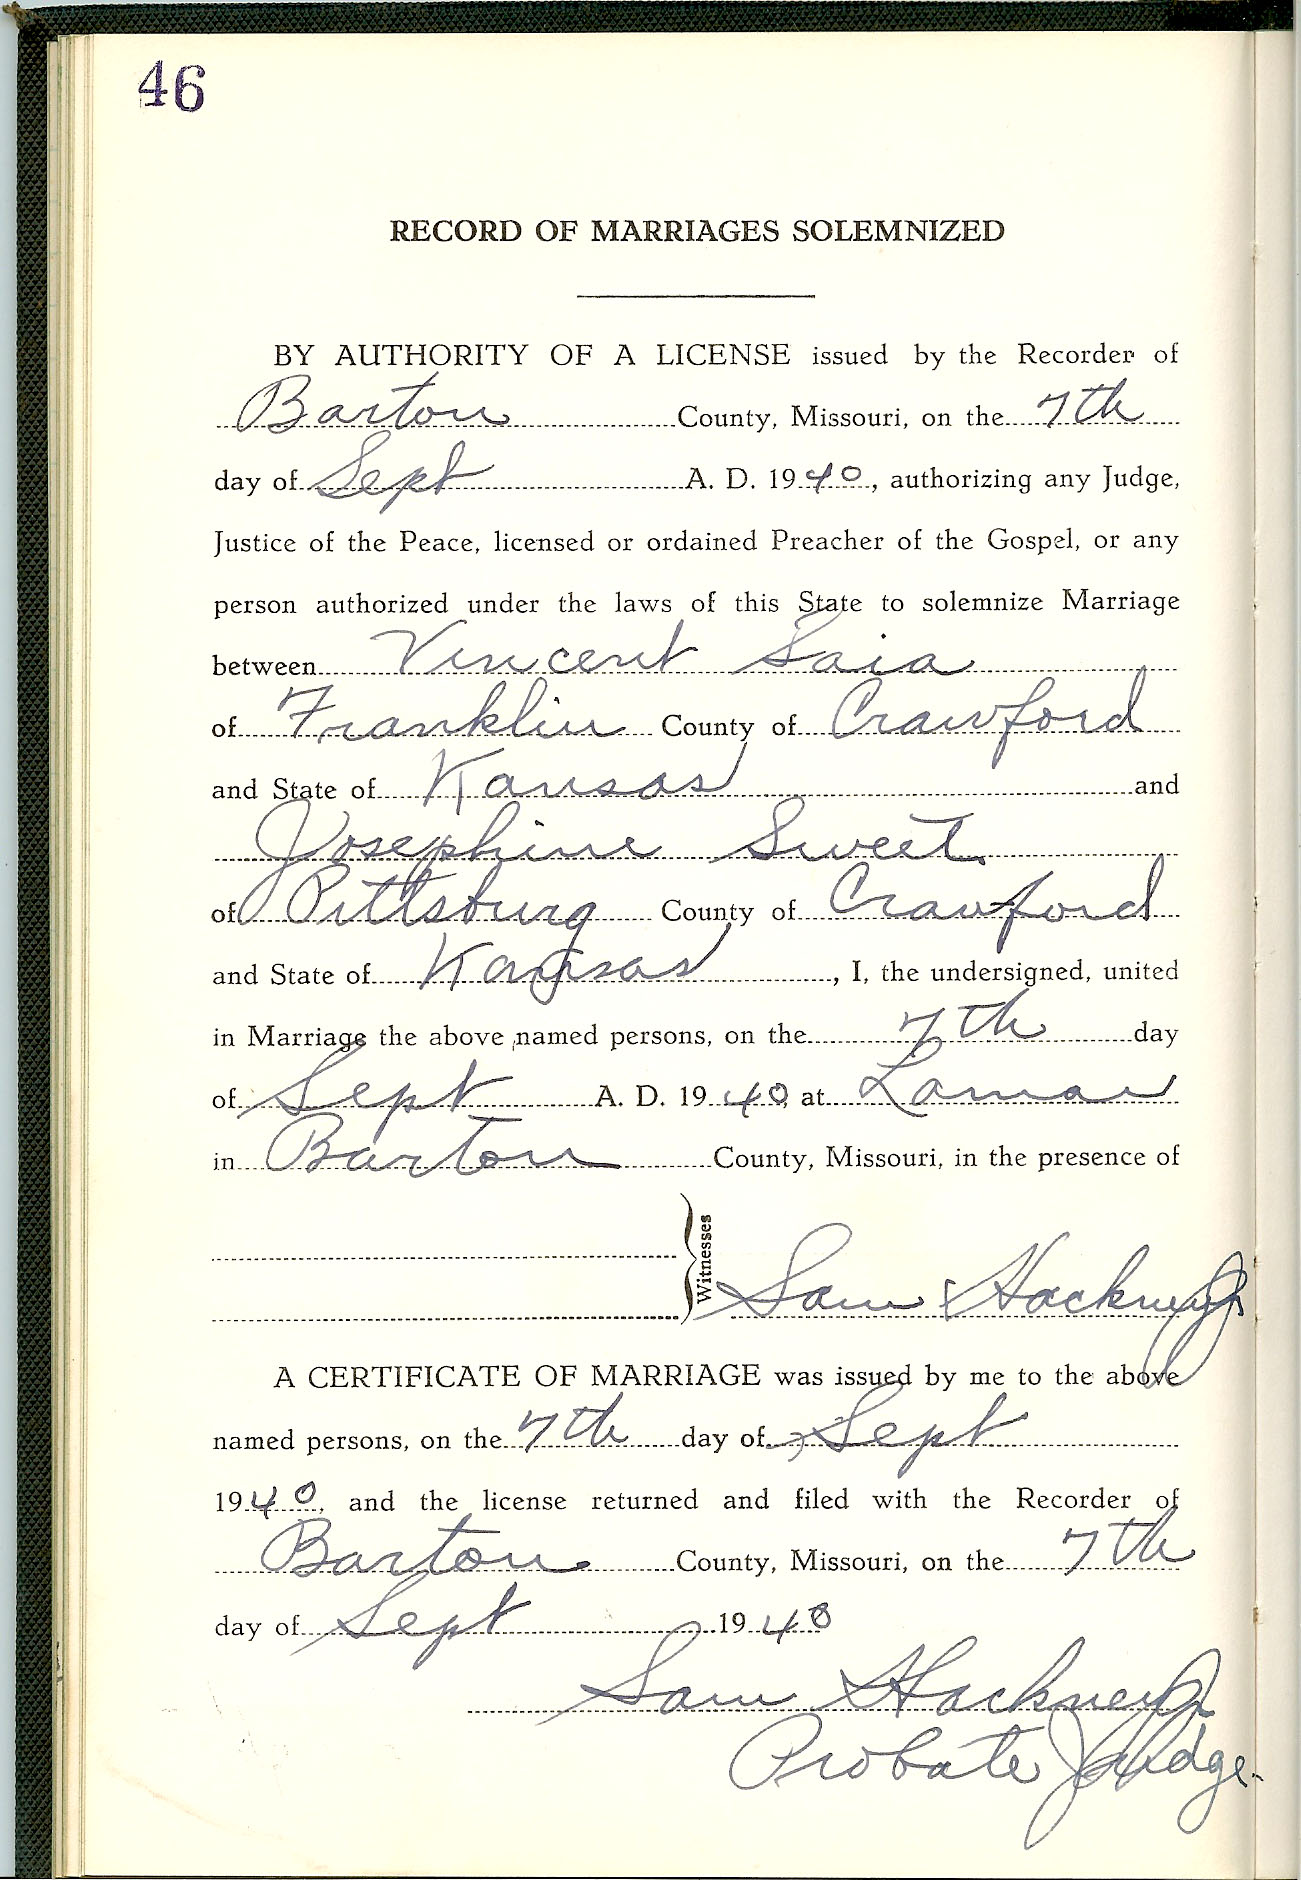 46
RECORD OF MARRIAGES SOLEMNIZED
BY AUTHORITY OF A LICENSE issued by the Recorder of
Barton County, Missouri, on the 7th
day of Sept A. D. 1940, authorizing any Judge,
Justice of the Peace, licensed or ordained Preacher of the Gospel, or any
person authorized under the laws of this State to solemnize Marriage
between Vincent Saia
of Franklin County of Crawford
and State of Kansas and
Josephine Sweet
of Pittsburg County of Crawford
and State of Kansas, I, the undersigned, united
in Marriage the above named persons, on the 7th day
of Sept A. D. 1940 at Lamar
in Barton County, Missouri, in the presence of
Witnesses
Sam Hackney Jr
A CERTIFICATE OF MARRIAGE was issued by me to the above
named persons, on the 7th day of Sept
1940, and the license returned and filed with the Recorder of
Barton County, Missouri, on the 7th
day of Sept 1940
Sam Hackney Jr
Probate Judge.